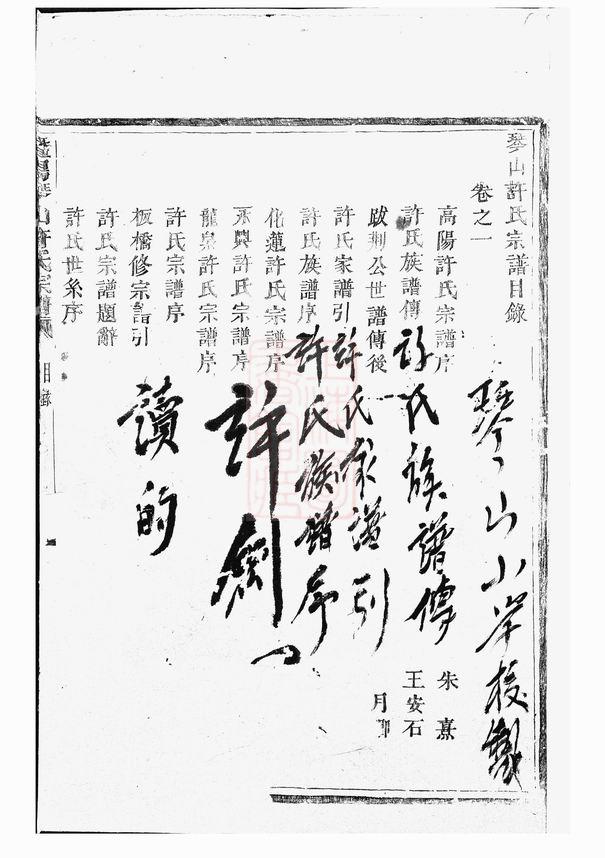 琴山許氏宗譜目錄
卷之一
高陽許氏宗譜序 朱熹
許氏族譜傳 王安石
跋荆公世譜傳後 月
許氏家譜引
許氏族譜序
化蓮許氏宗譜序
永興許氏宗譜序
龍泉許氏宗譜序
許氏宗譜序
板橋修宗譜引
許氏宗譜題辭
許氏世系序
目錄
琴山小學校
許氏族譜傳
許氏家譜引
許氏族譜序
許
讀的